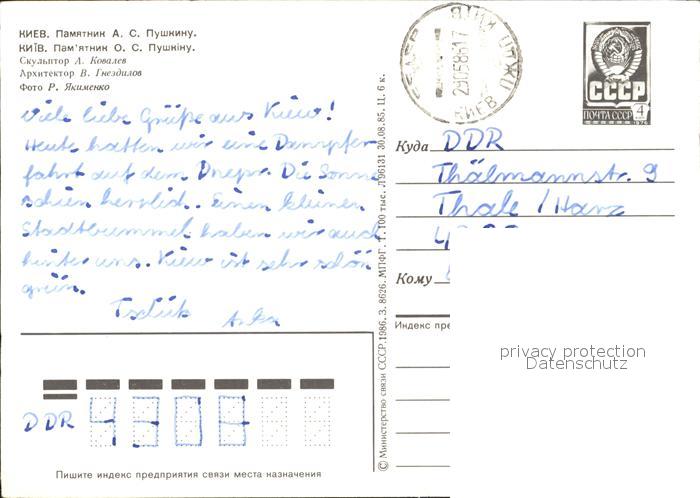 КИЕВ. Памятник А. С. Пушкину.
КИЇВ. Пам'ятник О. С. Пушкіну.
Скульптор А. Ковалев
Архитектор В. Гнездилов
Фото Р. Якименко
Viele liebe Grüße aus Kiew!
Heute hatten wir eine Dampfer-
fahrt auf dem Dnepr. Die Sonne
schien herrlich. Einen kleinen
Stadtbummel haben wir auch
hinter uns. Kiew ist sehr schön
grün.
Tschüß
DDR 4308
Пишите индекс предприятия связи места назначения
© Министерство связи СССР. 1986. З. 8626. МПФГ. Т. 100 тыс. Л96131 30.08.85. Ц. 6 к.
290586 17
КИЕВ
СССР
ПОЧТА СССР 4
Куда DDR
Thälmannstr. 9
Thale / Harz
4
Кому
Индекс пре
privacy protection
Datenschutz